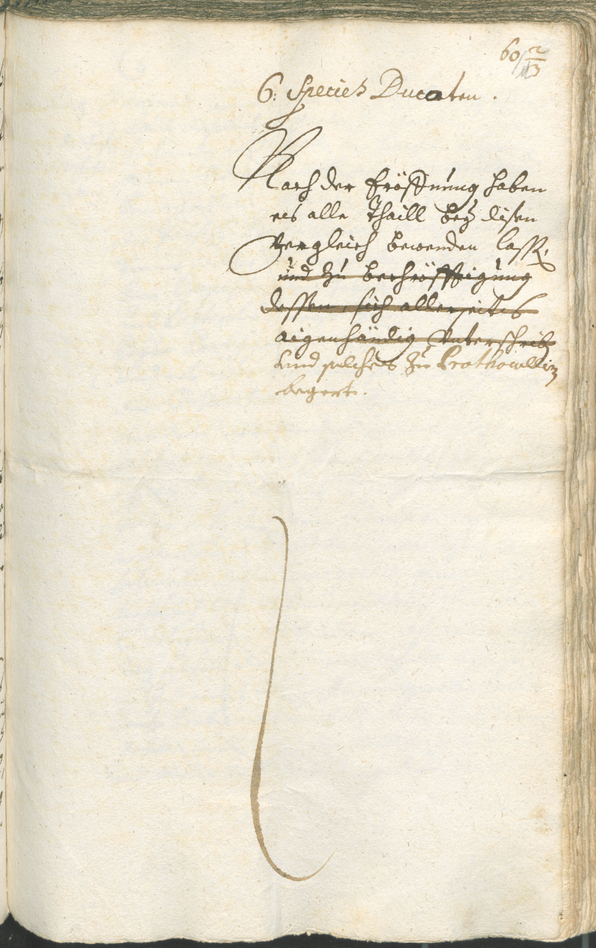 60 2/3
6. Species Ducaten.
Nach der Eröffnung haben
es alle Thaill bey disen
Vergleich bewenden lass.
und zu bekröfftigung
dessen sich allerseits
aigenhändig Unterschrib
und solches zu Prothocolliern
begert.